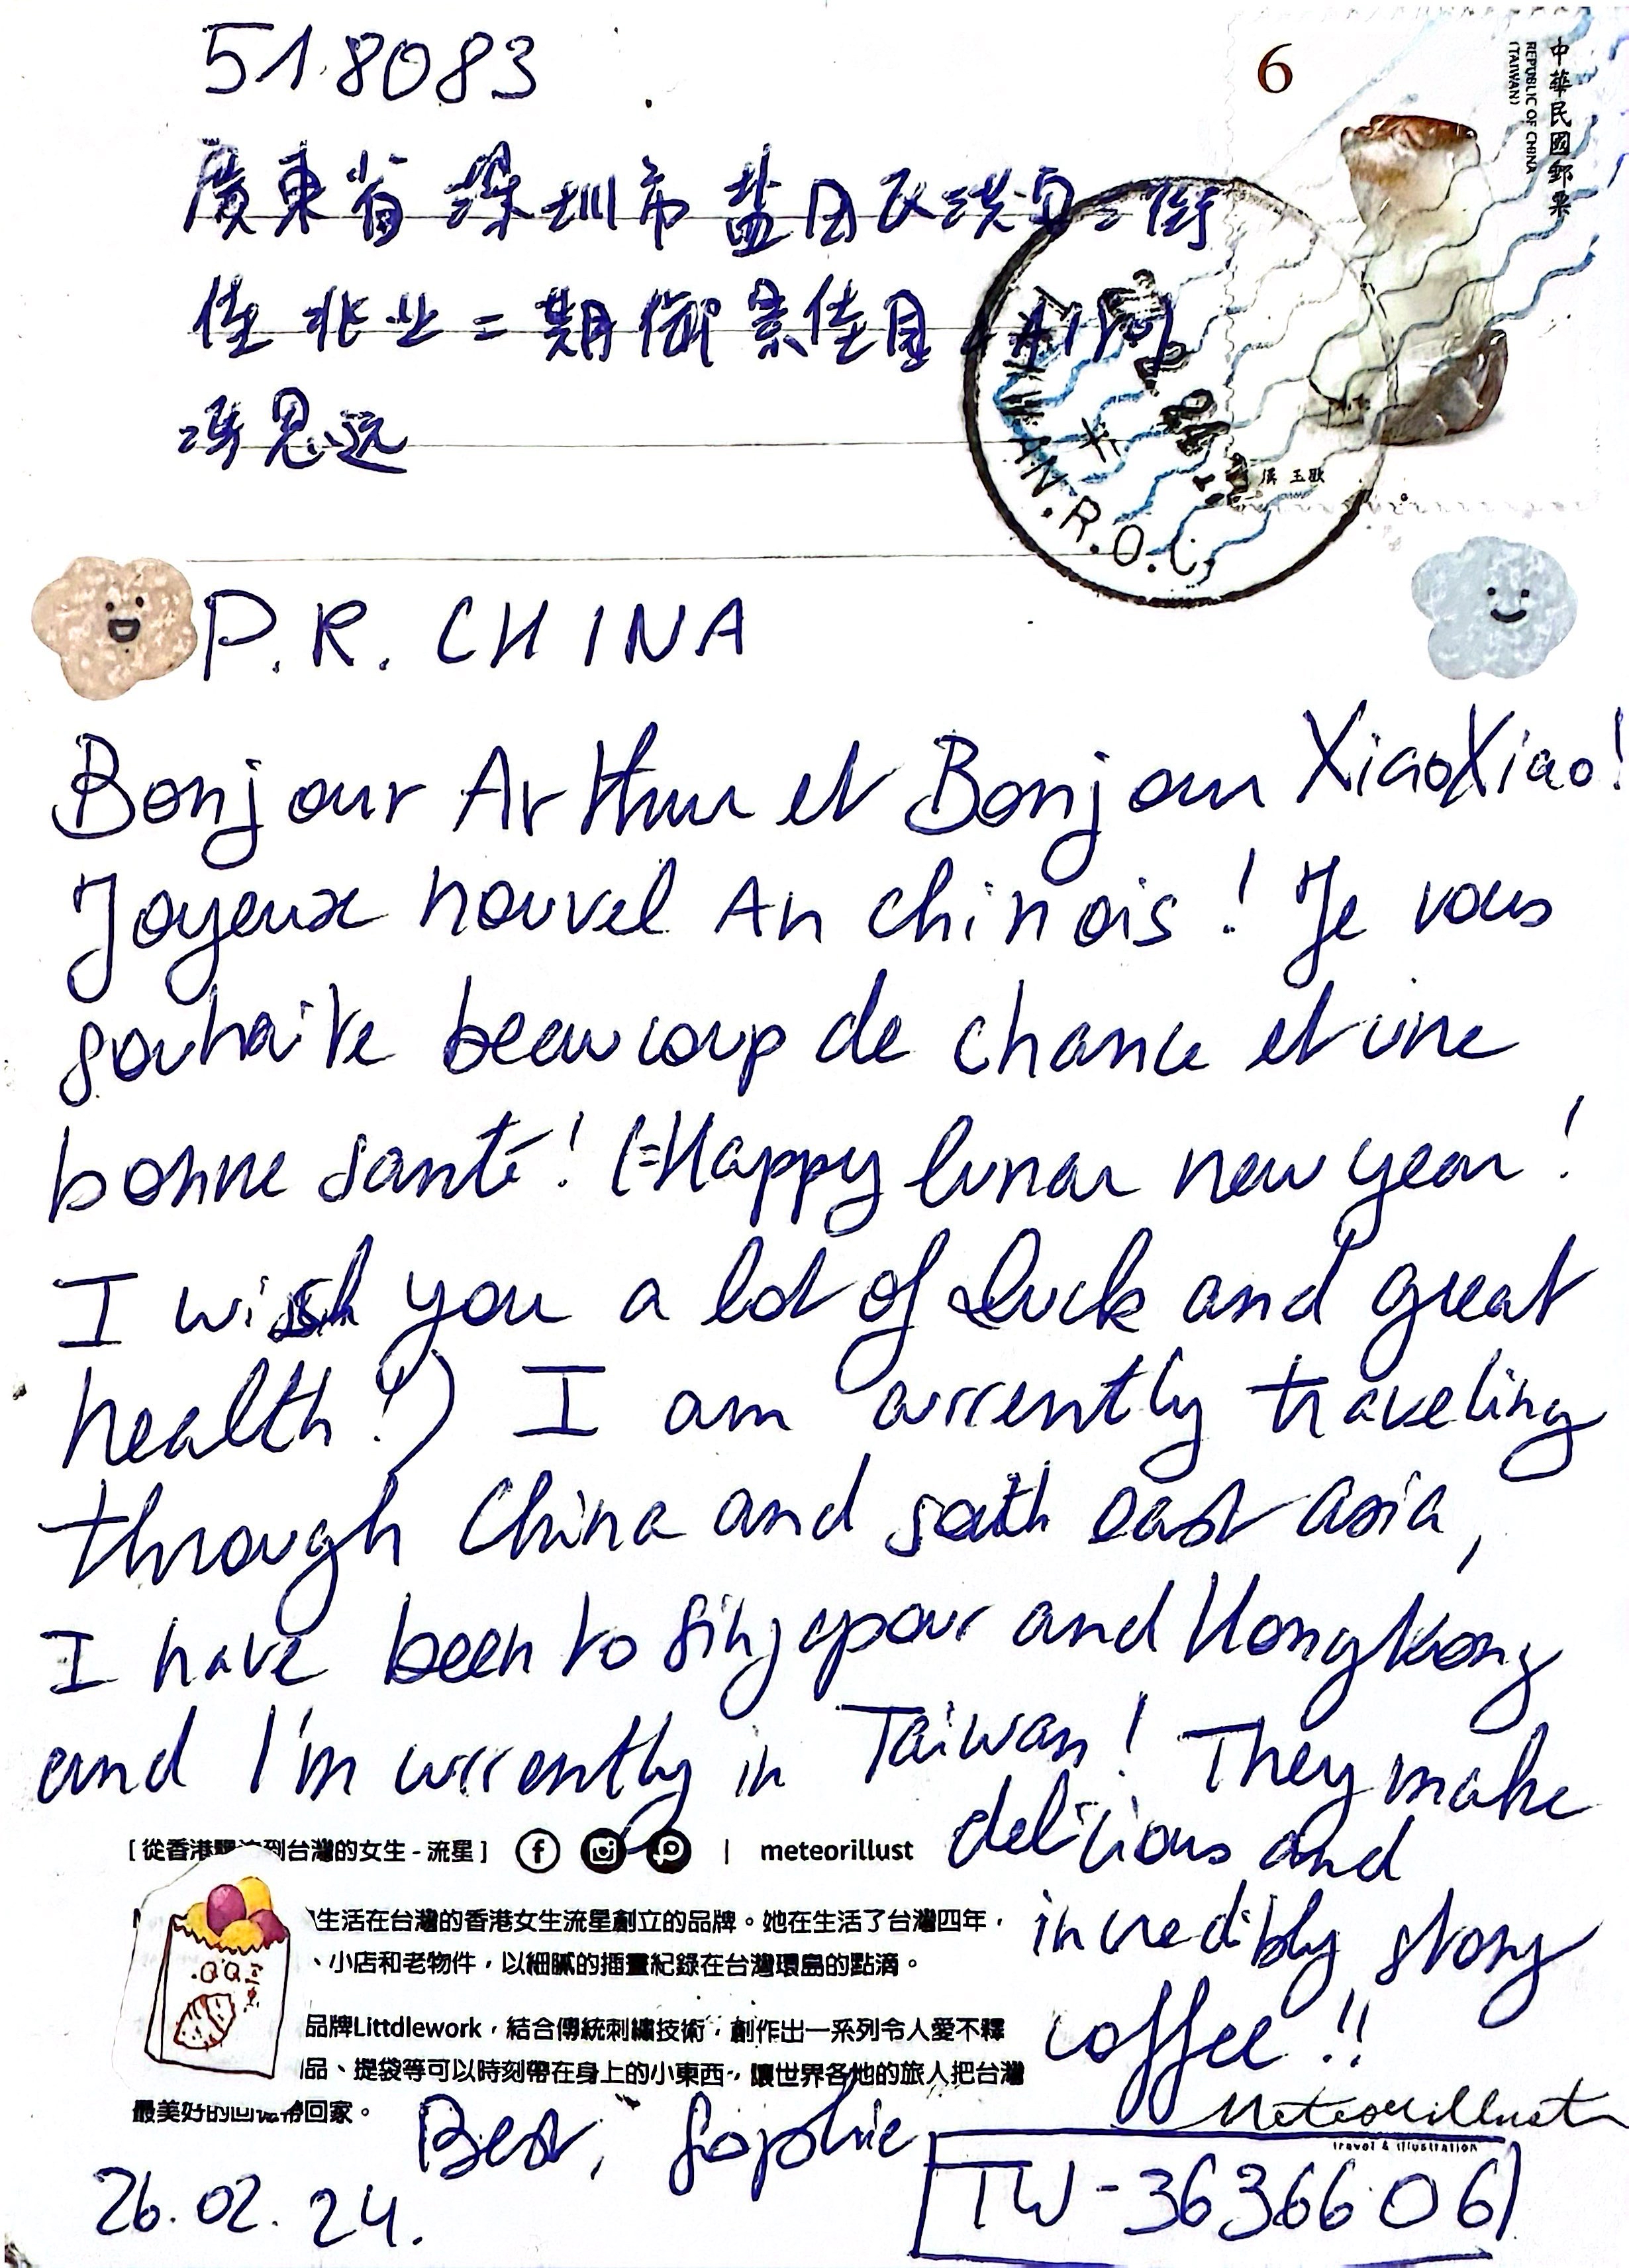 518083
6
中華民國郵票
REPUBLIC OF CHINA
(TAIWAN)
廣東省深圳市盐田区洪安三街
佳兆业二期御景佳园
冯思远
AN.R.O.C.
P.R. CHINA
Bonjour Arthur et Bonjour XiaoXiao!
Joyeux nouvel An chinois! Je vous
souhaite beaucoup de chance et une
bonne santé! (=Happy lunar new year!
I wish you a lot of Luck and great
health!) I am currently traveling
through China and south east asia,
I have been to Singapour and Hongkong
and I'm currently in Taiwan! They make
delicious and
incredibly strong
coffee!!
[從香港 到台灣的女生 - 流星] | meteorillust
生活在台灣的香港女生流星創立的品牌。她在生活了台灣四年，
、小店和老物件，以細膩的插畫紀錄在台灣環島的點滴。
品牌Littdlework，結合傳統刺繡技術，創作出一系列令人愛不釋
品、提袋等可以時刻帶在身上的小東西，讓世界各地的旅人把台灣
最美好的回憶帶回家。
QQ
Meteorillust
travel & illustration
Best, Sophie
26.02.24.
TW-3636606